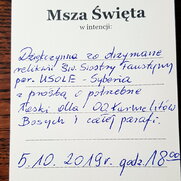 Msza Święta
w intencji:
Dziękczynna za otrzymane
relikwii Św. Siostry Faustyny
par. USOLE - Syberia
z prośbą o potrzebne
łaski dla OO. Karmelitów
Bosych i całej parafi.
5.10.2019r. godz. 18:00